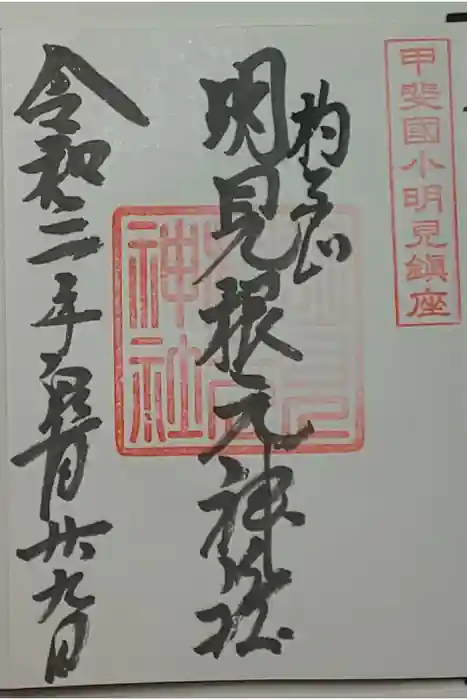 甲斐國小明見鎮座
杓子山
明見根元神社
令和二年皐月廿九日